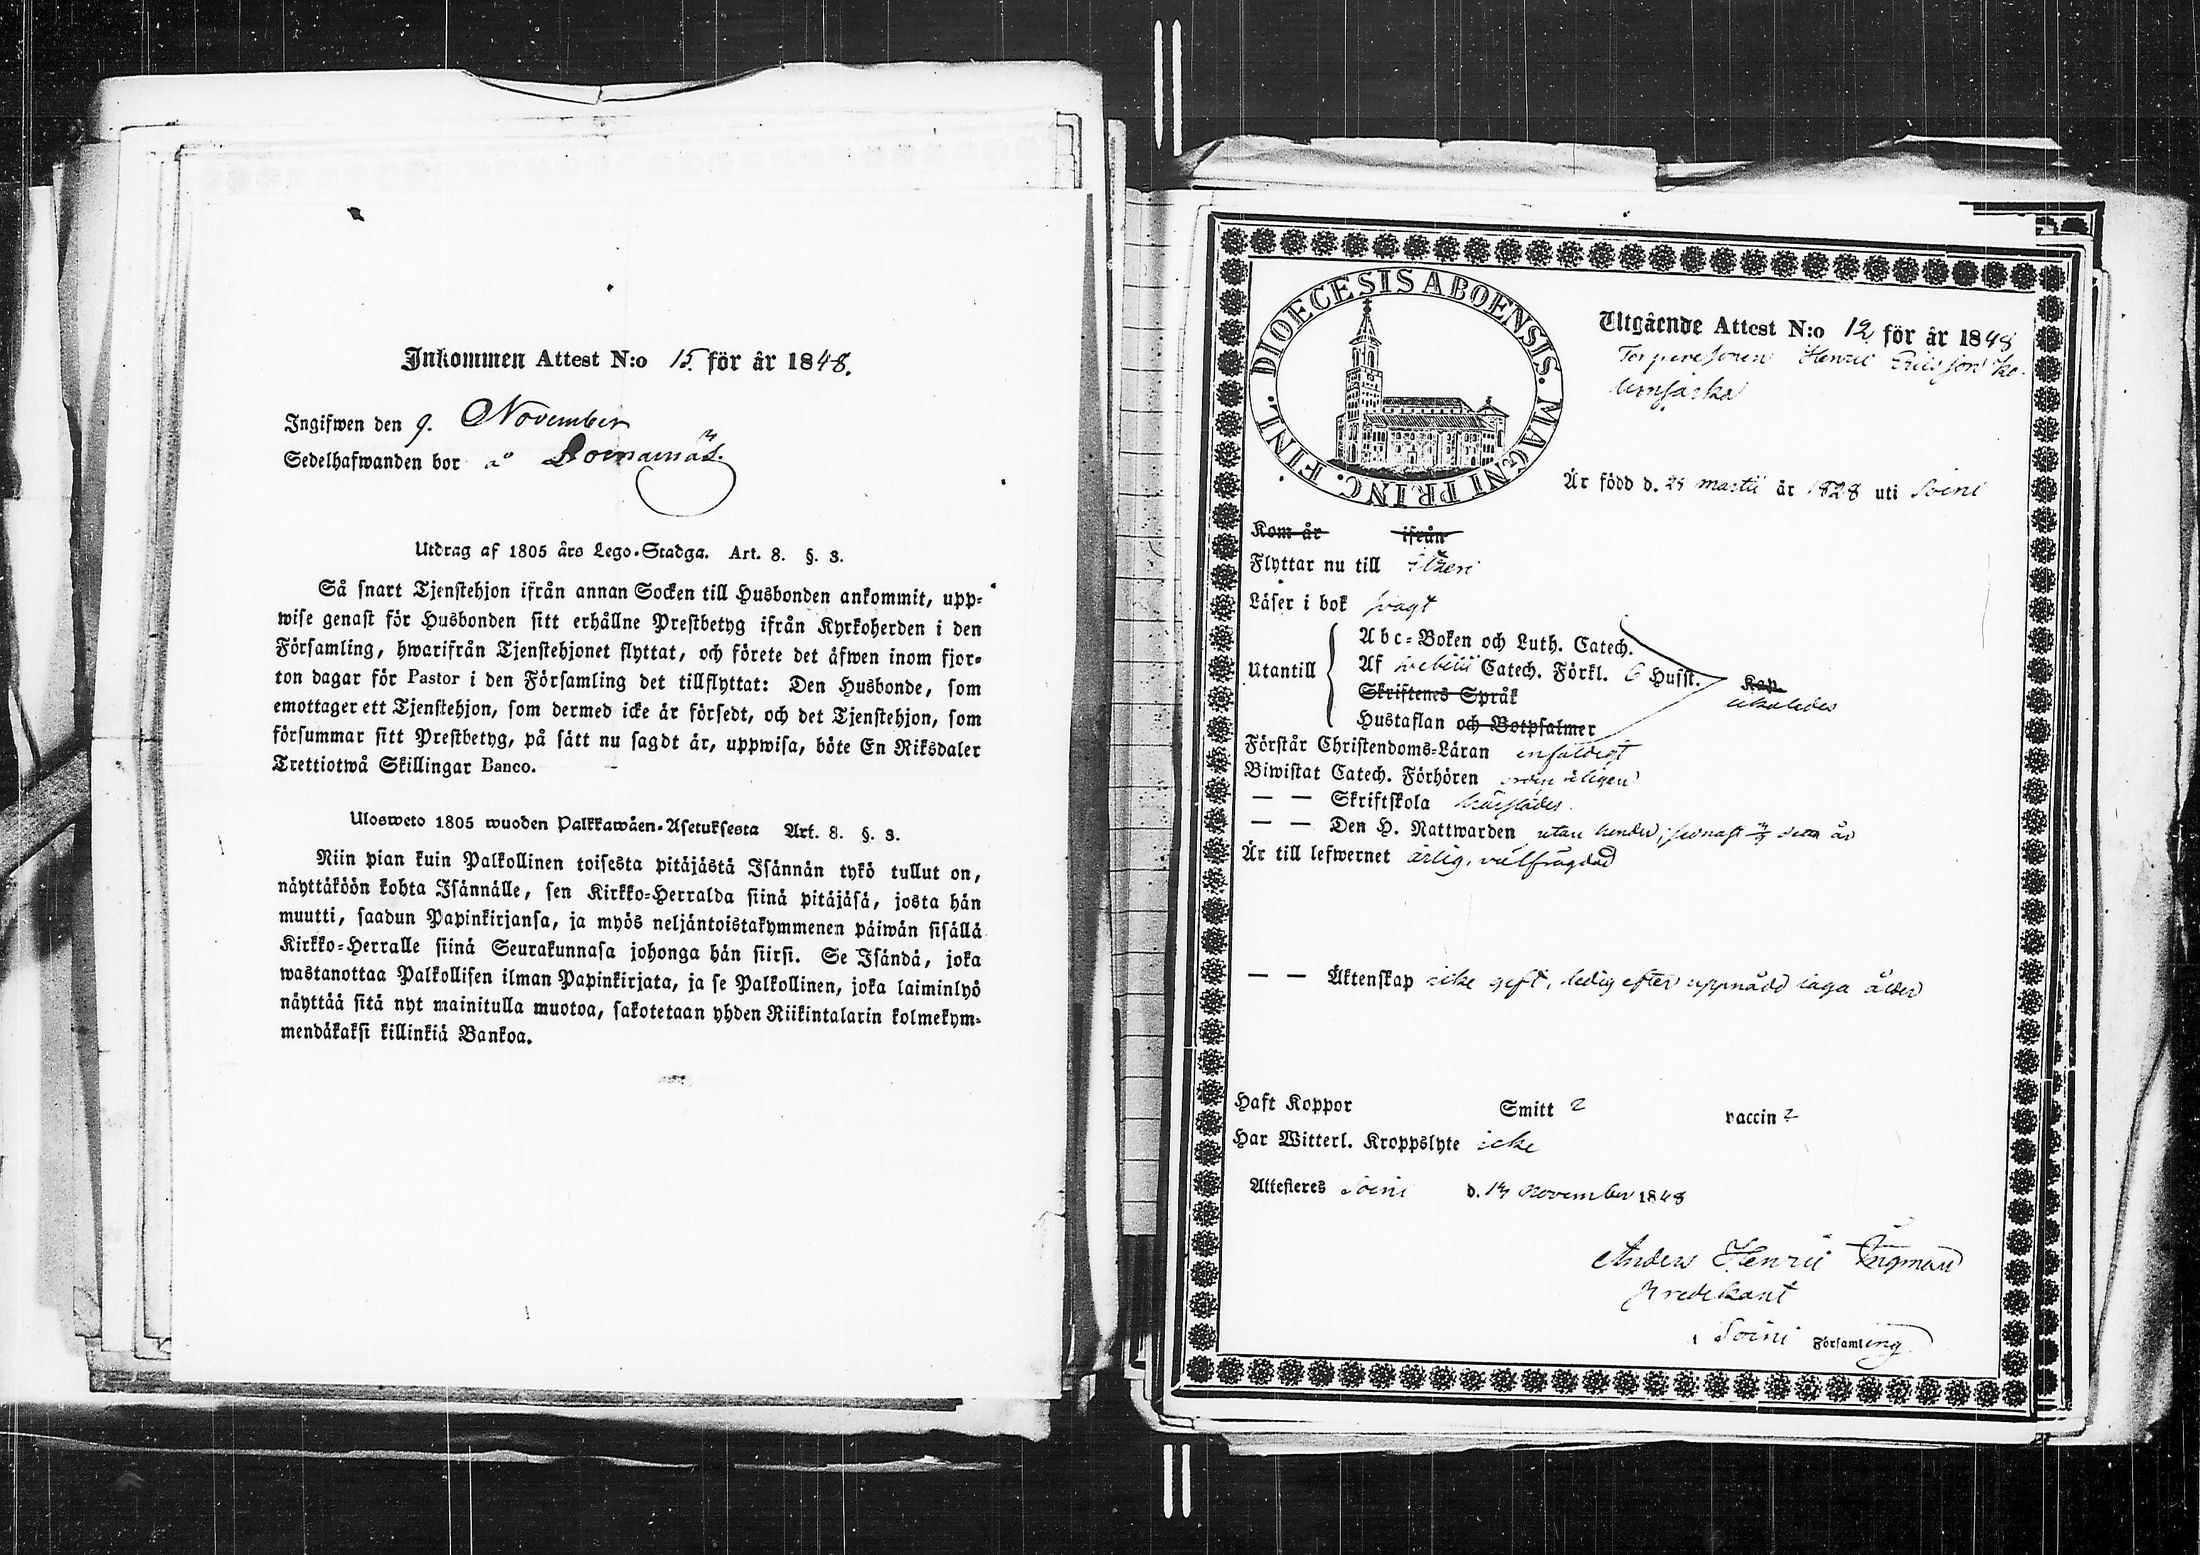 Inkommen Attest N:o 15. för år 1848.
Ingifwen den 9. November
Sedelhafwanden bor å
Utdrag af 1805 års Lego-Stadga. Art. 8. §. 3.
Så snart Tjenstehjon ifrån annan Socken till Husbonden ankommit, upp-
wise genast för Husbonden sitt erhållne Prestbetyg ifrån Kyrkoherden i den
Församling, hwarifrån Tjenstehjonet flyttat, och förete det äfwen inom fjor-
ton dagar för Pastor i den Församling det tillflyttat: Den Husbonde, som
emottager ett Tjenstehjon, som dermed icke är försedt, och det Tjenstehjon, som
försummar sitt Prestbetyg, på sätt nu sagdt är, uppwisa, böte En Riksdaler
Trettiotwå Skillingar Banco.
Ulosweto 1805 wuoden Palkkawäen-Asetuksesta Art. 8. §. 3.
Niin pian kuin Palkollinen toisesta pitäjästä Isännän tykö tullut on,
näyttäköön kohta Isännälle, sen Kirkko-Herralda siinä pitäjäsä, josta hän
muutti, saadun Papinkirjansa, ja myös neljäntoistakymmenen päiwän sisällä
Kirkko-Herralle siinä Seurakunnasa johonga hän siirsi. Se Isändä, joka
wastanottaa Palkollisen ilman Papinkirjata, ja se Palkollinen, joka laiminlyö
näyttää sitä nyt mainitulla muotoa, sakotetaan yhden Riikintalarin kolmekym-
mendäkaksi killinkiä Bankoa.
DIOECESIS ABOENSIS. MAGNI PRINC. FINL.
Utgående Attest N:o 12 för år 1848
Torparesonen Henric Ericsson
Är född d. martii år 1828 uti Soini
Kom år ifrån
Flyttar nu till
Läser i bok svagt
Utantill
Abc-Boken och Luth. Catech.
Af Svebilii Catech. Förkl. 6 Husst. Kap.
Skriftenes Språk
Hustaflan och Botpsalmer
likaledes
Förstår Christendoms-Läran enfaldigt
Biwistat Catech. Förhören ordentligen
— — Skriftskola härstädes.
— — Den H. Nattwarden utan hinder, senast detta år
Är till lefwernet ärlig, välfrägdad
— — Äktenskap icke gift, ledig efter uppnådd laga ålder
Haft Koppor Smitt 2 vaccin 2
Har Witterl. Kroppslyte icke
Attesteres Soini d. november 1848
Anders Henric Ingman
Predikant
i Soini Församling